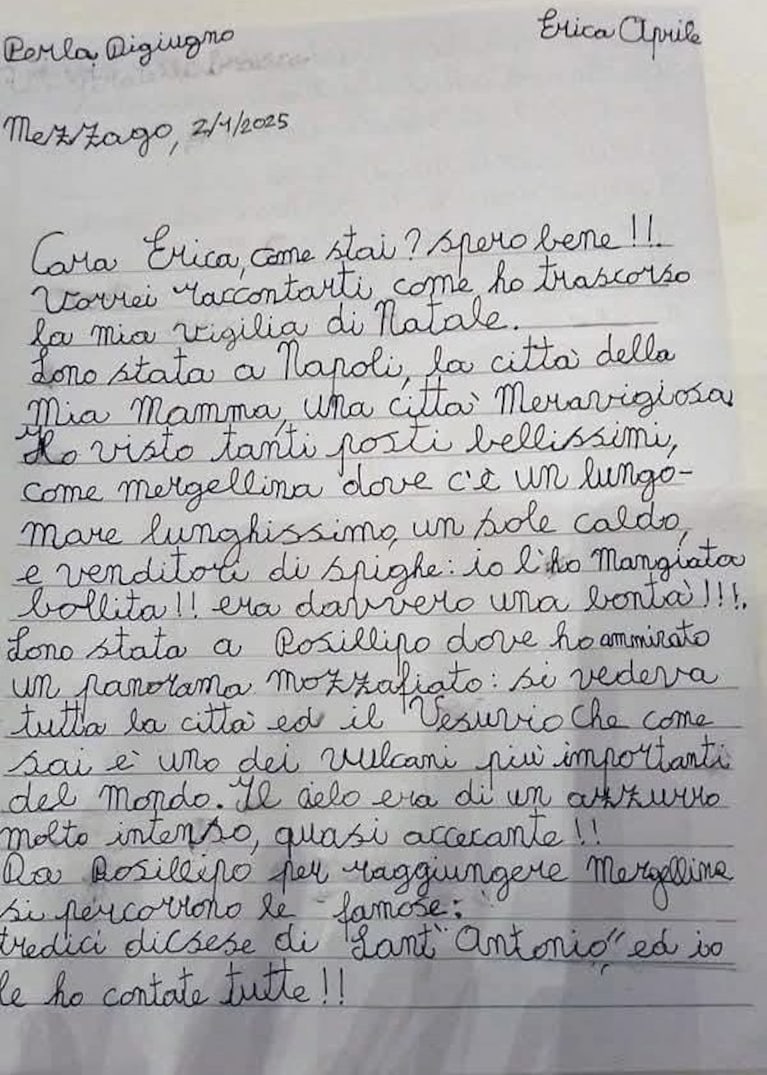 Perla Digiugno
Erica Aprile
Mezzago, 2/1/2025
Cara Erica, come stai? spero bene!!.
Vorrei raccontarti come ho trascorso
la mia vigilia di Natale.
Sono stata a Napoli, la città della
mia Mamma, una città Meravigiosa.
Ho visto tanti posti bellissimi,
come mergellina dove c'è un lungo-
mare lunghissimo, un sole caldo,
e venditori di spighe: io l'ho mangiata
bollita!! era davvero una bontà!!!.
Sono stata a Posillipo dove ho ammirato
un panorama mozzafiato: si vedeva
tutta la città ed il Vesuvio che come
sai è uno dei vulcani più importanti
del mondo. Il cielo era di un azzurro
molto intenso, quasi accecante!!
Da Posillipo per raggiungere Mergellina
si percorrono le famose:
tredici dicsese di "Sant" Antonio" ed io
le ho contate tutte!!